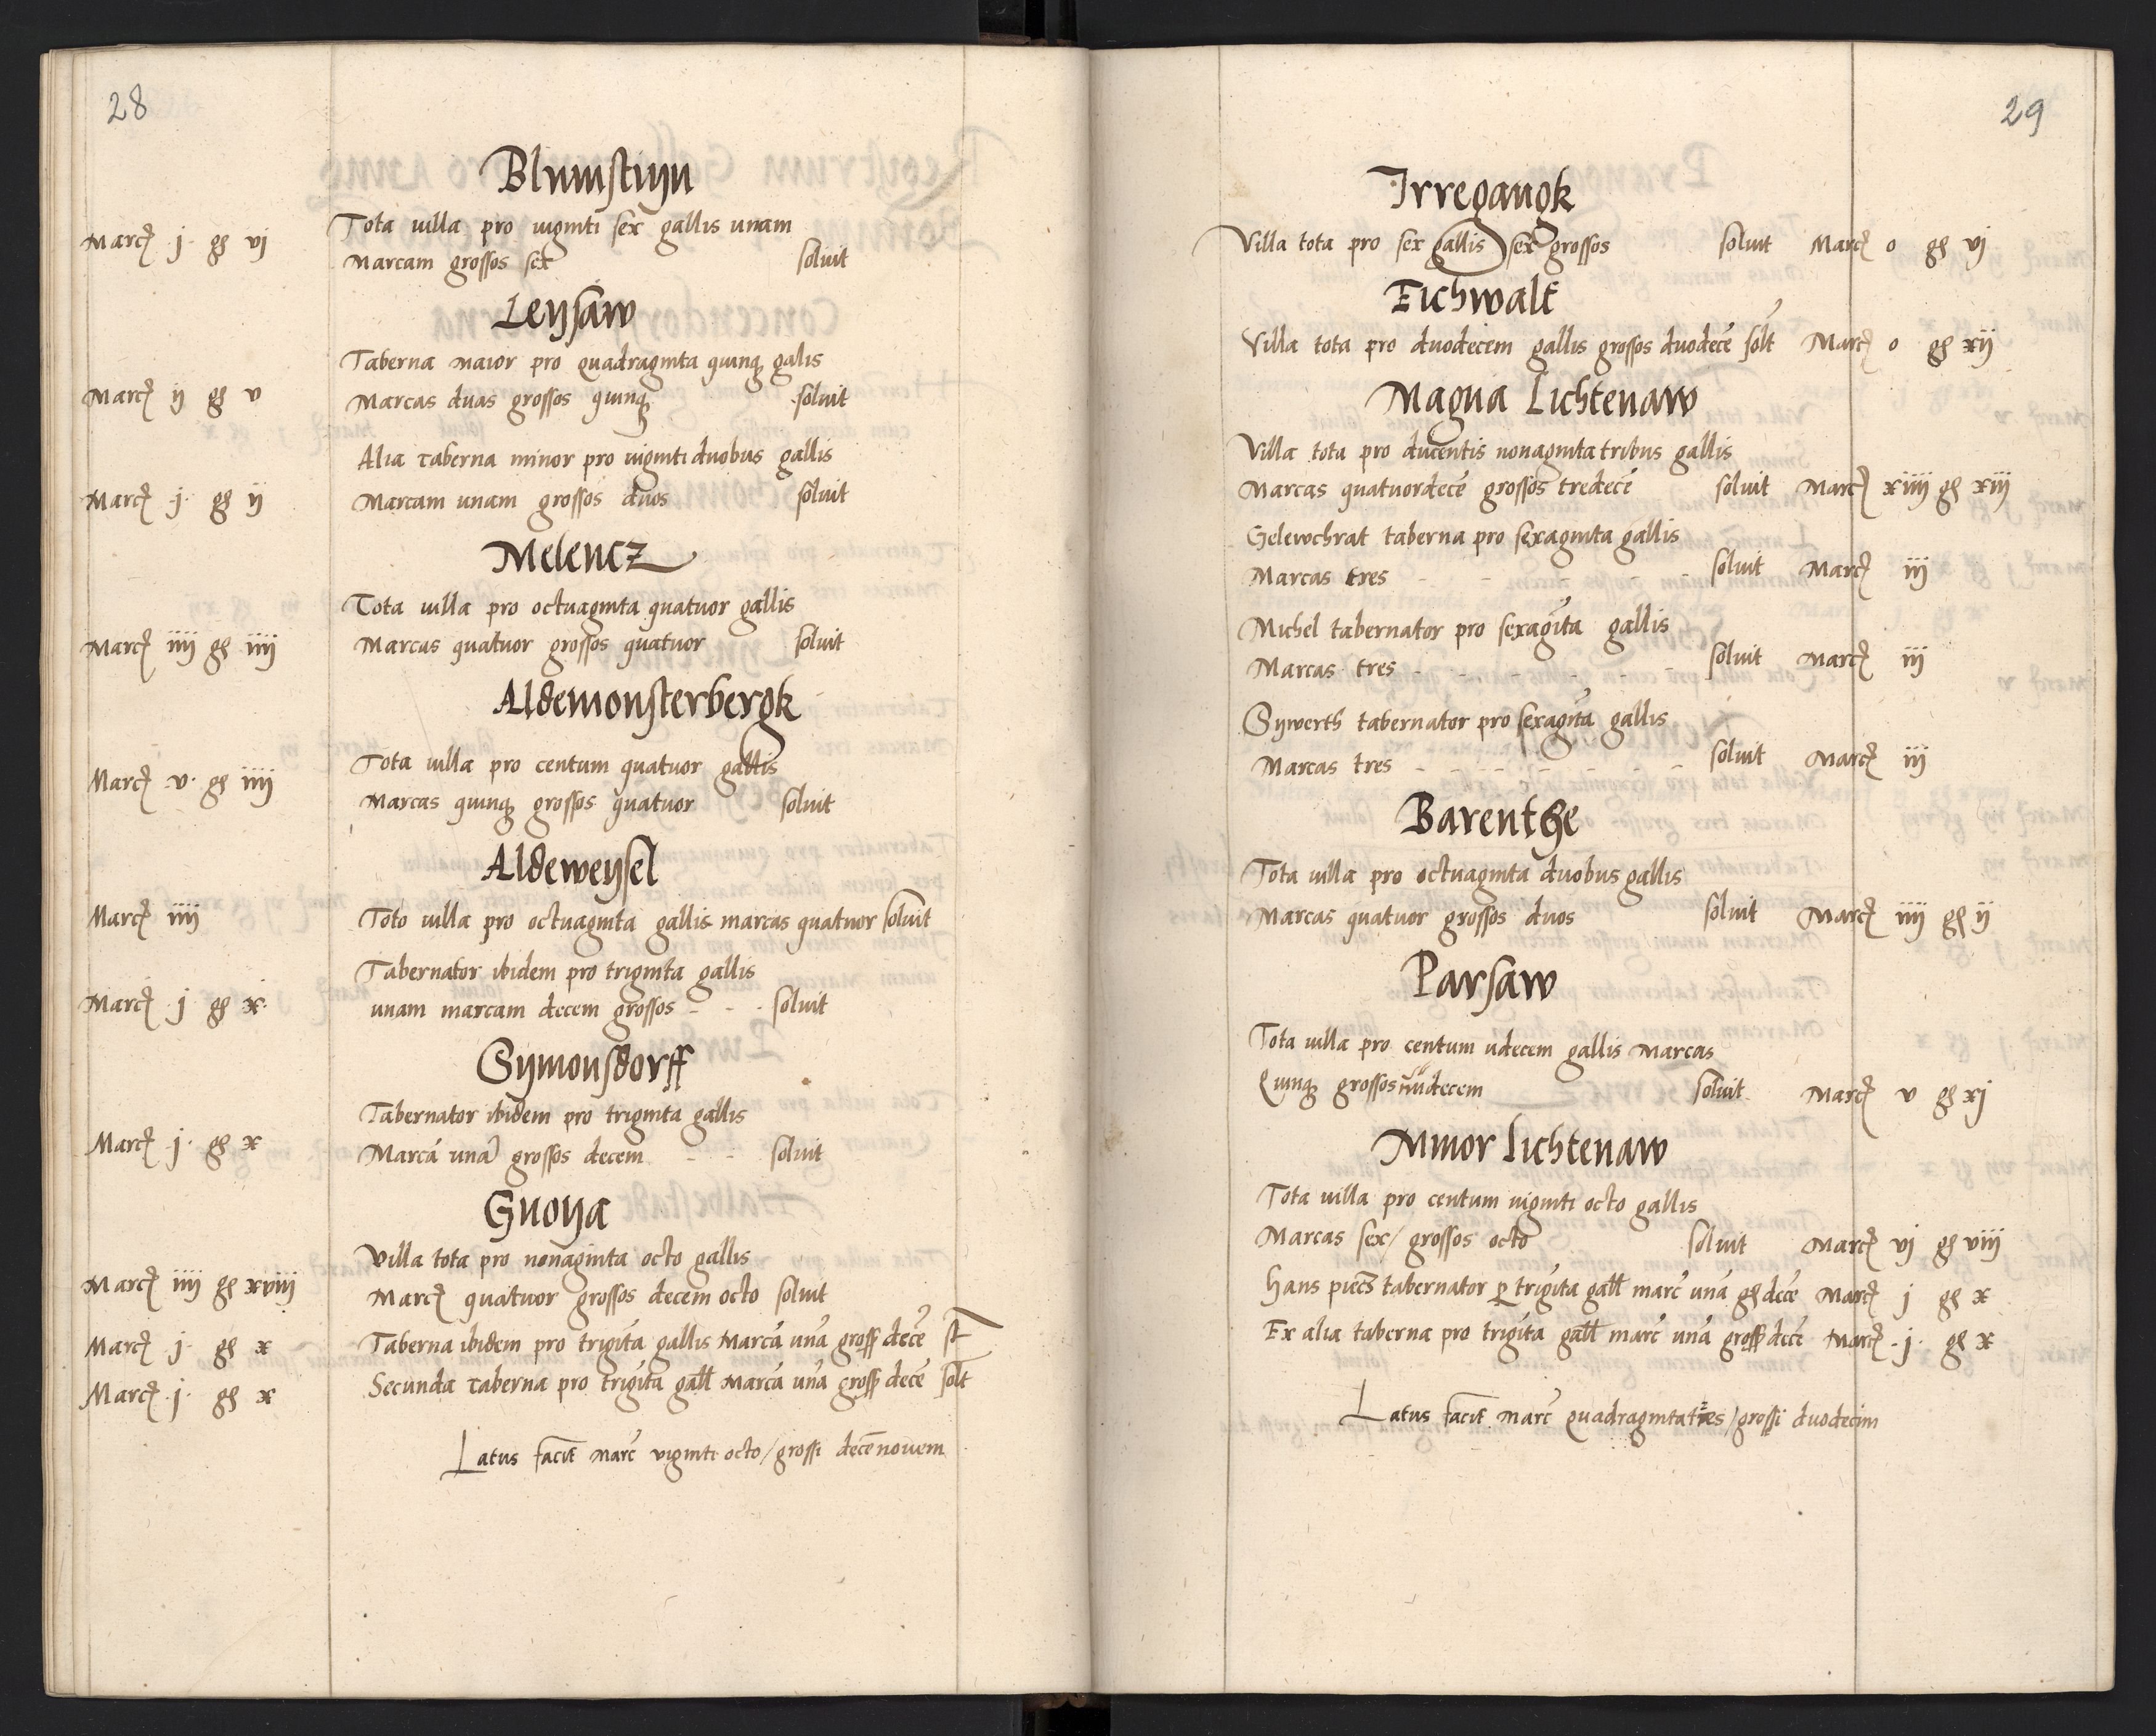 28
Blumstiyn
Tota villa pro viginti sex gallis unam
Marcꝭ j · gꝭ vj
Marcam grossos sex soluit
Leysaw
Taberna maior pro quadraginta quinqꝫ galis
Marcꝭ ij gꝭ v Marcas duas grossos quinqꝫ soluit
Alia taberna minor pro viginti duobus gallis
Marcꝭ j · gꝭ ij Marcam unam grossos duos soluit
Melencz
Tota villa pro octuaginta quatuor gallis
Marcꝭ iiij gꝭ iiij Marcas quatuor grossos quatuor soluit
Aldemonsterbergk
Tota villa pro centum quatuor gallis
Marcꝭ v · gꝭ iiij Marcas quinqꝫ grossos quatuor soluit
Aldeweysel
Marcꝭ iiij Toto villa pro octuaginta gallis marcas quatuor soluit
Tabernator ibidem pro triginta gallis
Marcꝭ j gꝭ x · unam marcam decem grossos - - - soluit
Symonsdorff
Tabernator ibidem pro triginta gallis
Marcꝭ j · gꝭ x Marcā unā grossos decem - - soluit
Gnoya
Villa tota pro nonaginta octo gallis
Marcꝭ iiij gꝭ xviij Marcꝭ quatuor grossos decem octo soluit
Marcꝭ j · gꝭ x Taberna ibidem pro trigīta gallis Marcā unā gross decē st
Marcꝭ j · gꝭ x Secunda taberna pro trigīta gall Marcā unā gross decē solt
Latus facit marc̄ viginti octo / grossi decē novem
29
Irregangk
Villa tota pro sex gallis sex grossos soluit Marcꝭ o gꝭ vj
Eichwalt
Villa tota pro duodecem gallis grossos duodecē solt Marcꝭ o gꝭ xij
Magna Lichtenaw
Villa tota pro ducentis nonaginta tribus gallis
Marcas quatuordecē grossos tredecē soluit Marcꝭ xiiij gꝭ xiij
Gelewchrat taberna pro sexaginta gallis
Marcas tres - - - - - soluit Marcꝭ iij
Michel tabernator pro sexagīta gallis
Marcas tres - - - - - - soluit Marcꝭ iij
Sywerth tabernator pro sexagīta gallis
Marcas tres - - - - - - - soluit Marcꝭ iij
Barenthe
Tota villa pro octuaginta duobus gallis
Marcas quatuor grossos duos soluit Marcꝭ iiij gꝭ ij
Parsaw
Tota villa pro centum udecem gallis Marcas
Quinqꝫ grossos undecem soluit Marcꝭ v gꝭ xj
Minor Lichtenaw
Tota villa pro centum viginti octo gallis
Marcas sex / grossos octo soluit Marcꝭ vj gꝭ viij
Hans tabernator ꝑ trigīta gall marc̄ unā gꝭ decē Marcꝭ j gꝭ x
Ex alia taberna pro trigīta gall marc̄ unā gross decē Marcꝭ · j · gꝭ x
Latus facit marc̄ Quadraginta tres / grossi duodecim